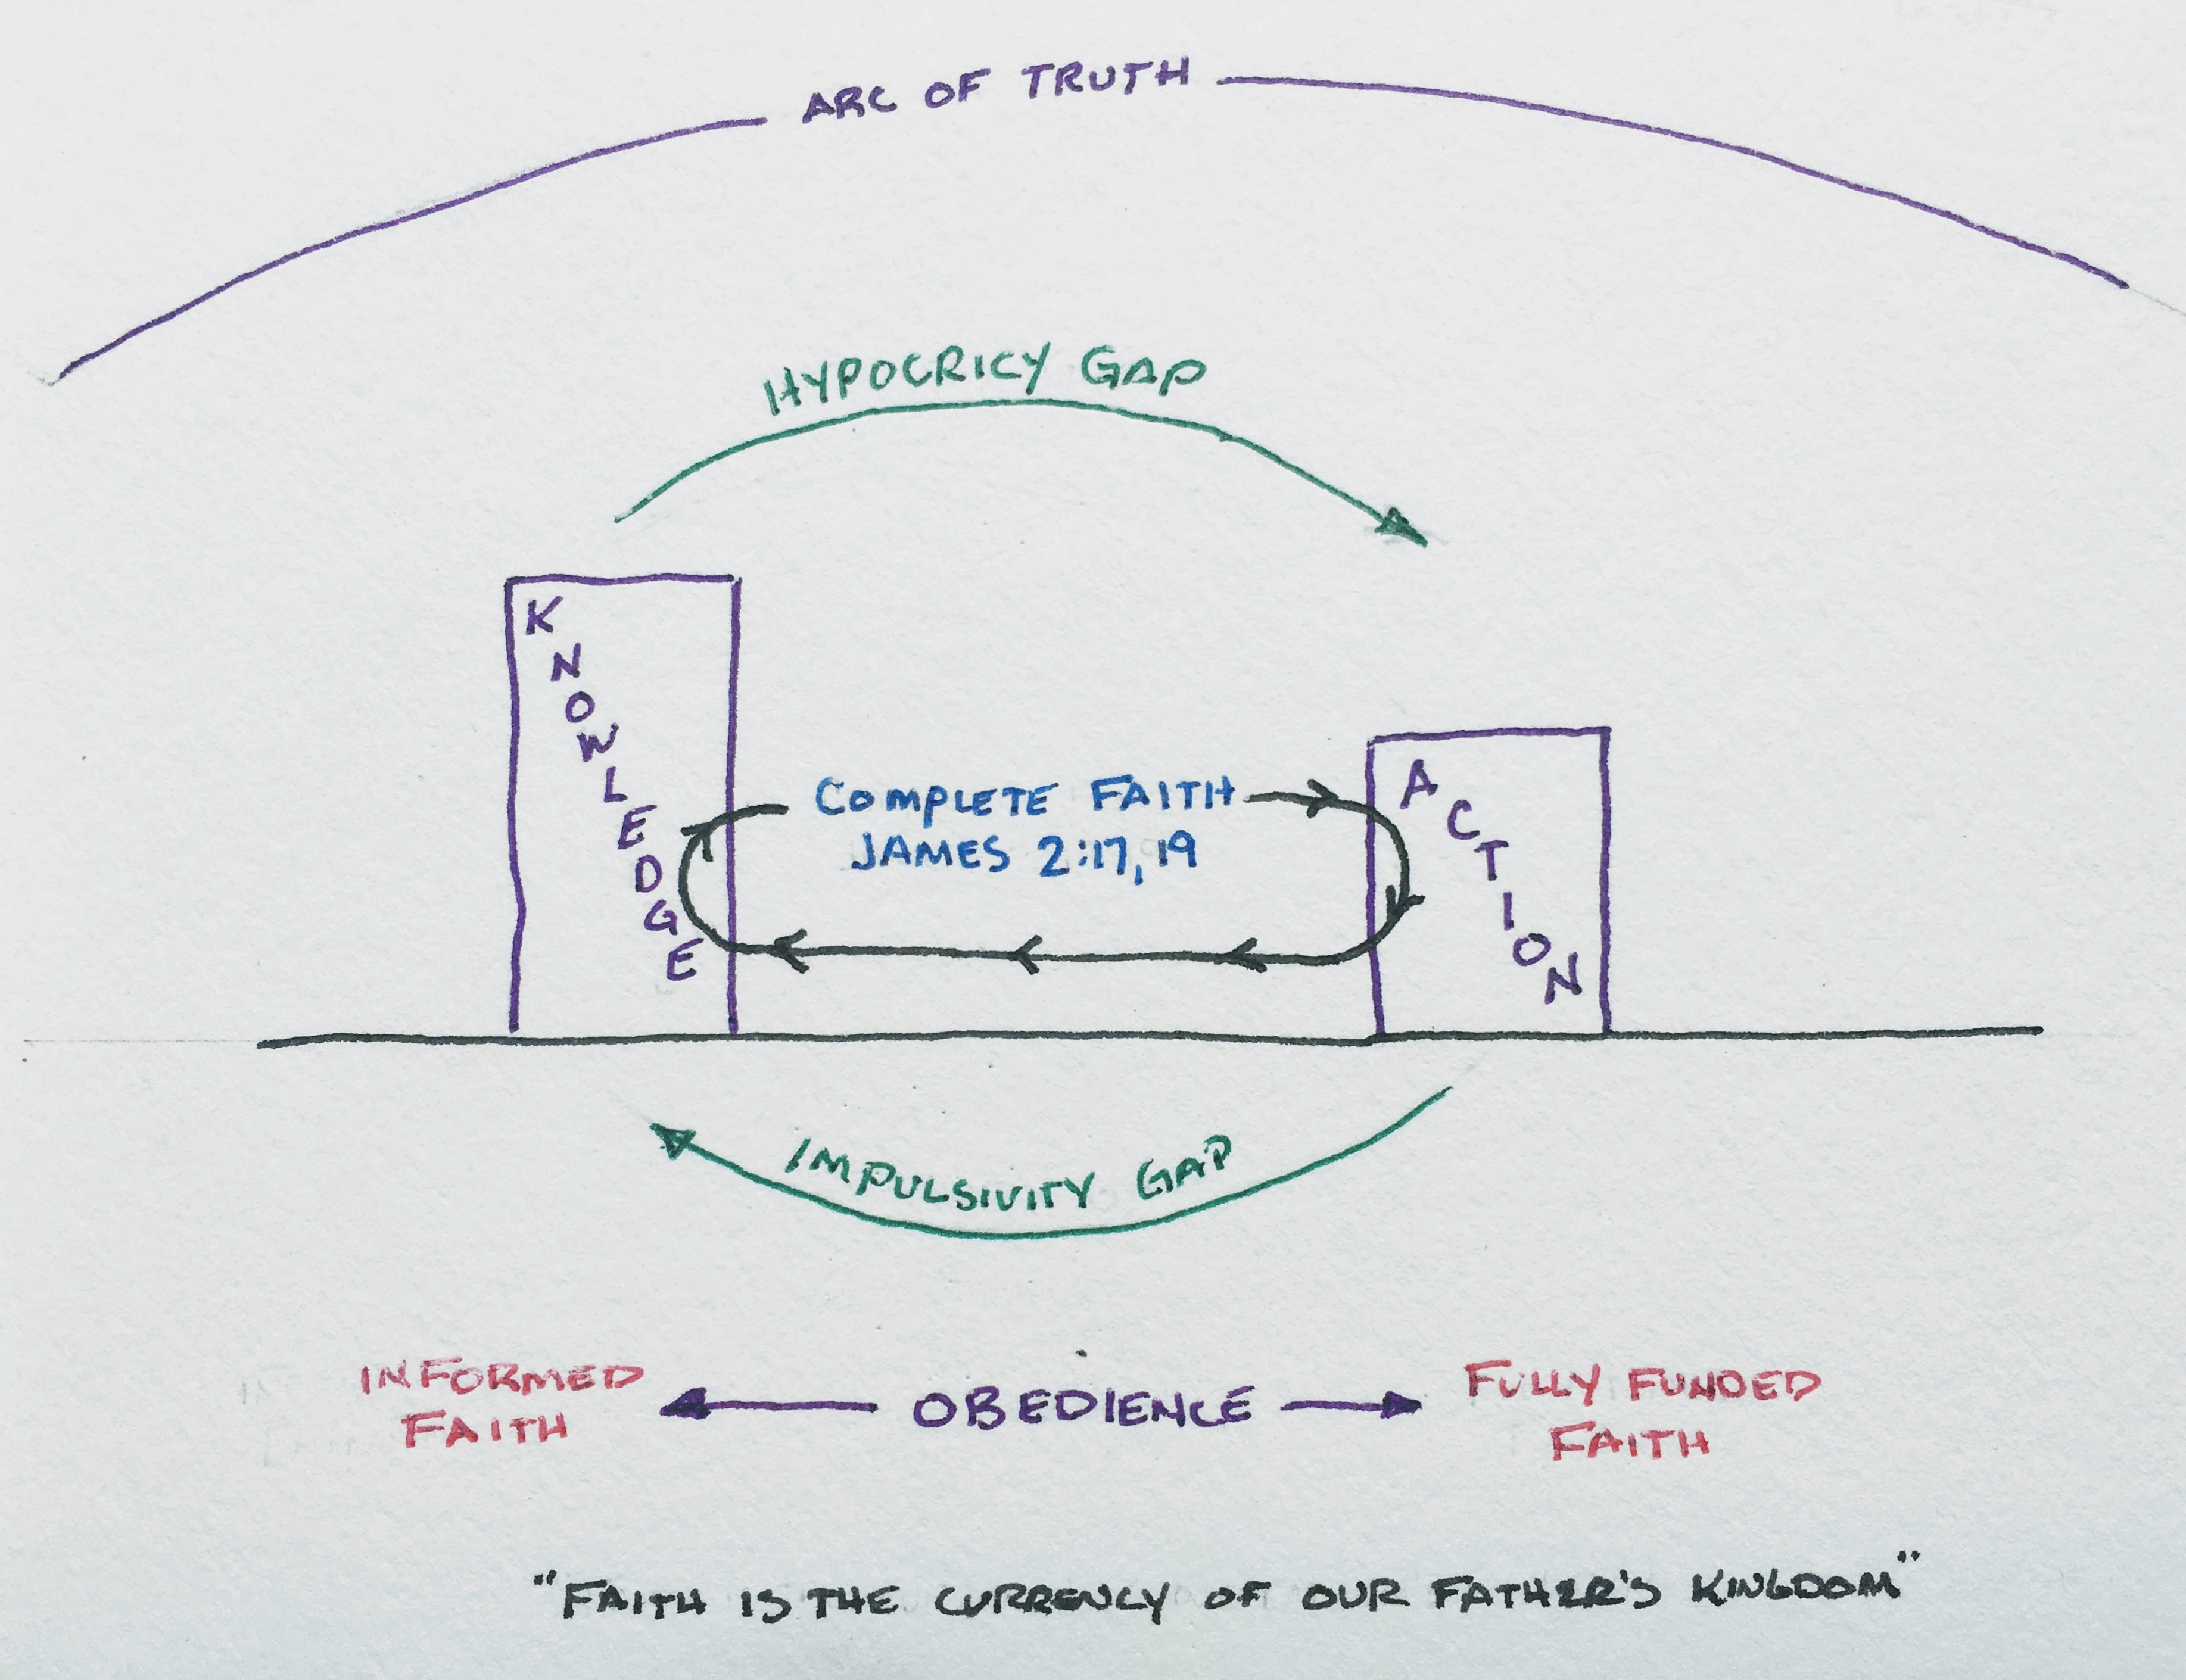 ARC OF TRUTH
HYPOCRICY GAP
KNOWLEDGE
COMPLETE FAITH
JAMES 2:17,19
ACTION
IMPULSIVITY GAP
INFORMED
FAITH
OBEDIENCE
FULLY FUNDED
FAITH
"FAITH IS THE CURRENCY OF OUR FATHER'S KINGDOM"